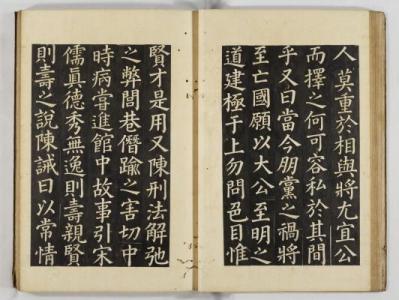 人 莫重於相與將尤宜公
而擇之何可容私於其間
乎又曰當今朋黨之禍將
至亡國願以大公至明之
道建極于上勿問色目惟
賢才是用又陳刑法解弛
之弊閭巷僭踰之害切中
時病嘗進館中故事引宋
儒眞德秀無逸則壽親賢
則壽之說陳誡曰以常情